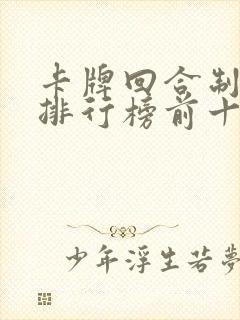 卡牌回合制
排行榜前十
少年浮生若夢